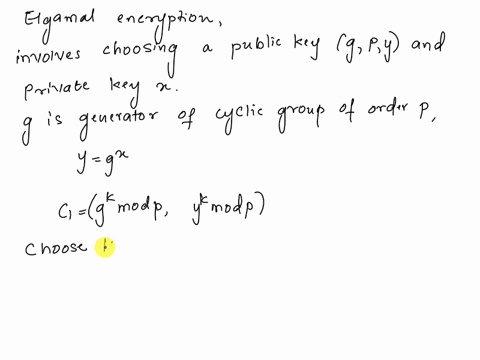 Elgamal encryption,
involves choosing a public key (g, P, y) and
private key x.
g is generator of cyclic group of order p,
y = g^x
C₁ = (g^k mod p, y^k mod p)
choose